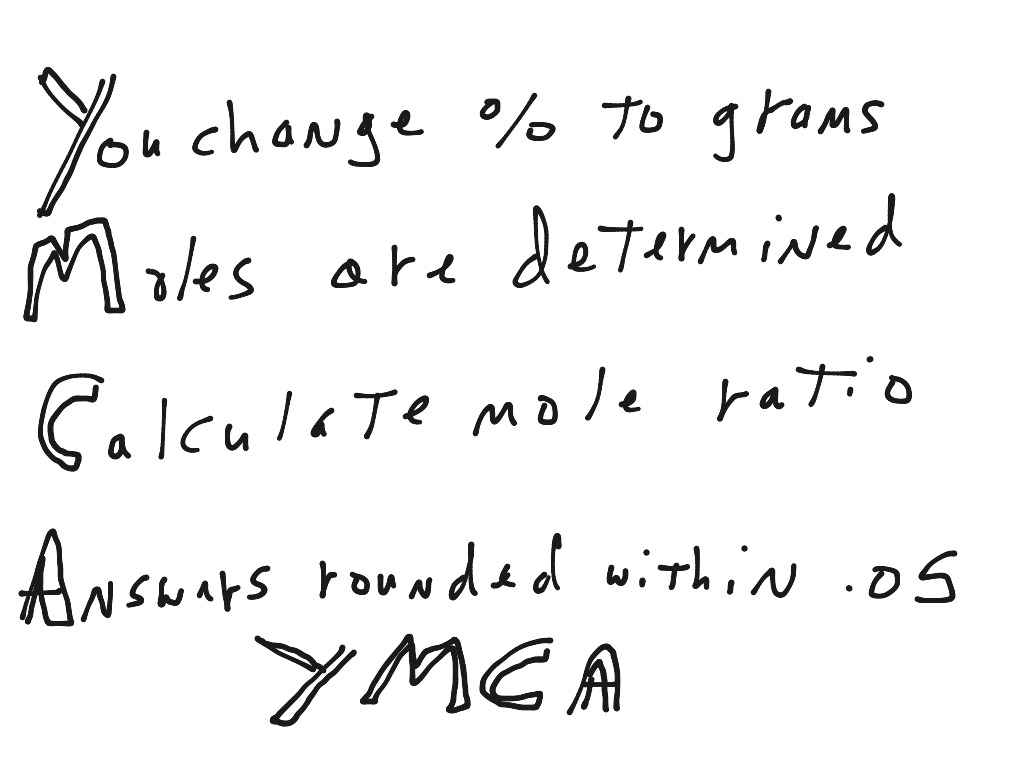 You change % to grams
Moles are determined
Calculate mole ratio
Answers rounded within .05
YMCA